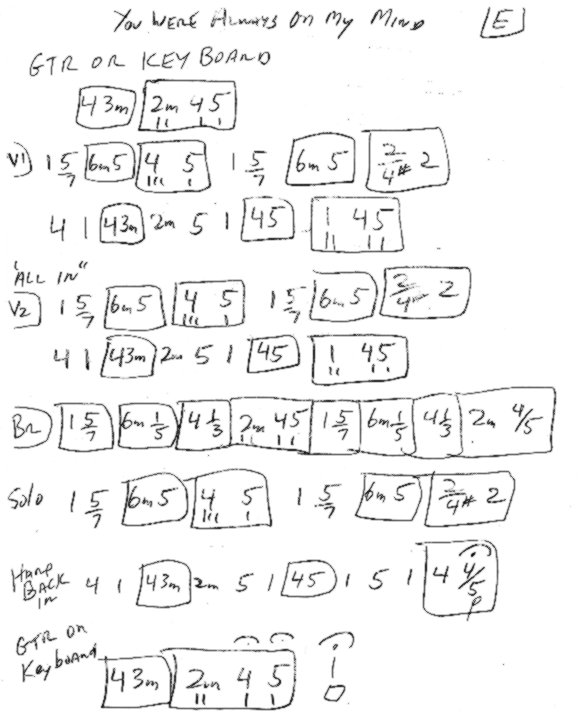 You Were Always On My Mind E
GTR OR KEYBOARD
43m 2m 45
V1) 1 5/7 6m5 4 5 1 5/7 6m 5 2/4# 2
4 1 43m 2m 5 1 45 1 45
"ALL IN"
V2 1 5/7 6m5 4 5 1 5/7 6m 5 2/4# 2
4 1 43m 2m 5 1 45 1 45
BR 1 5/7 6m 1/5 4 1/3 2m 45 1 5/7 6m 1/5 4 1/3 2m 4/5
Solo 1 5/7 6m5 4 5 1 5/7 6m 5 2/4# 2
BACK IN 4 1 43m 2m 5 1 45 1 5 1 4 4/5
GTR OR
Keyboard 43m 2m 4 5 1